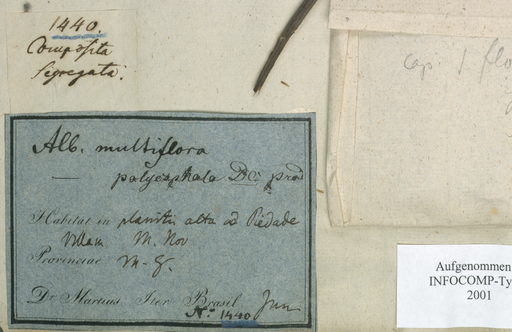 1440.
Composita
Segregata.
cap. 1 flo
Alb. multiflora
— polycephala DC. prod
Habitat in planitie alta ad Piedade
Villam M. Nov
Provinciae M. G.
Dr Martius Iter Brasil Jun
No. 1440
Aufgenommen
INFOCOMP-Ty
2001